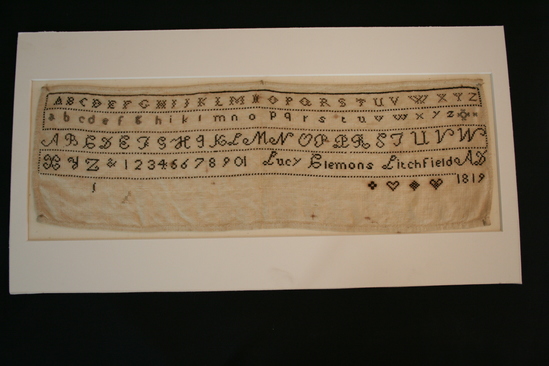 A B C D E F G H I J K L M N O P Q R S T U V W X Y Z
a b c d e f g h i k l m n o p q r s t u v w x y z
A B C D E F G H I K L M N O P Q R S T U V W
X Y Z & 1 2 3 4 6 6 7 8 9 0 1 Lucy Clemons Litchfield AD
1819